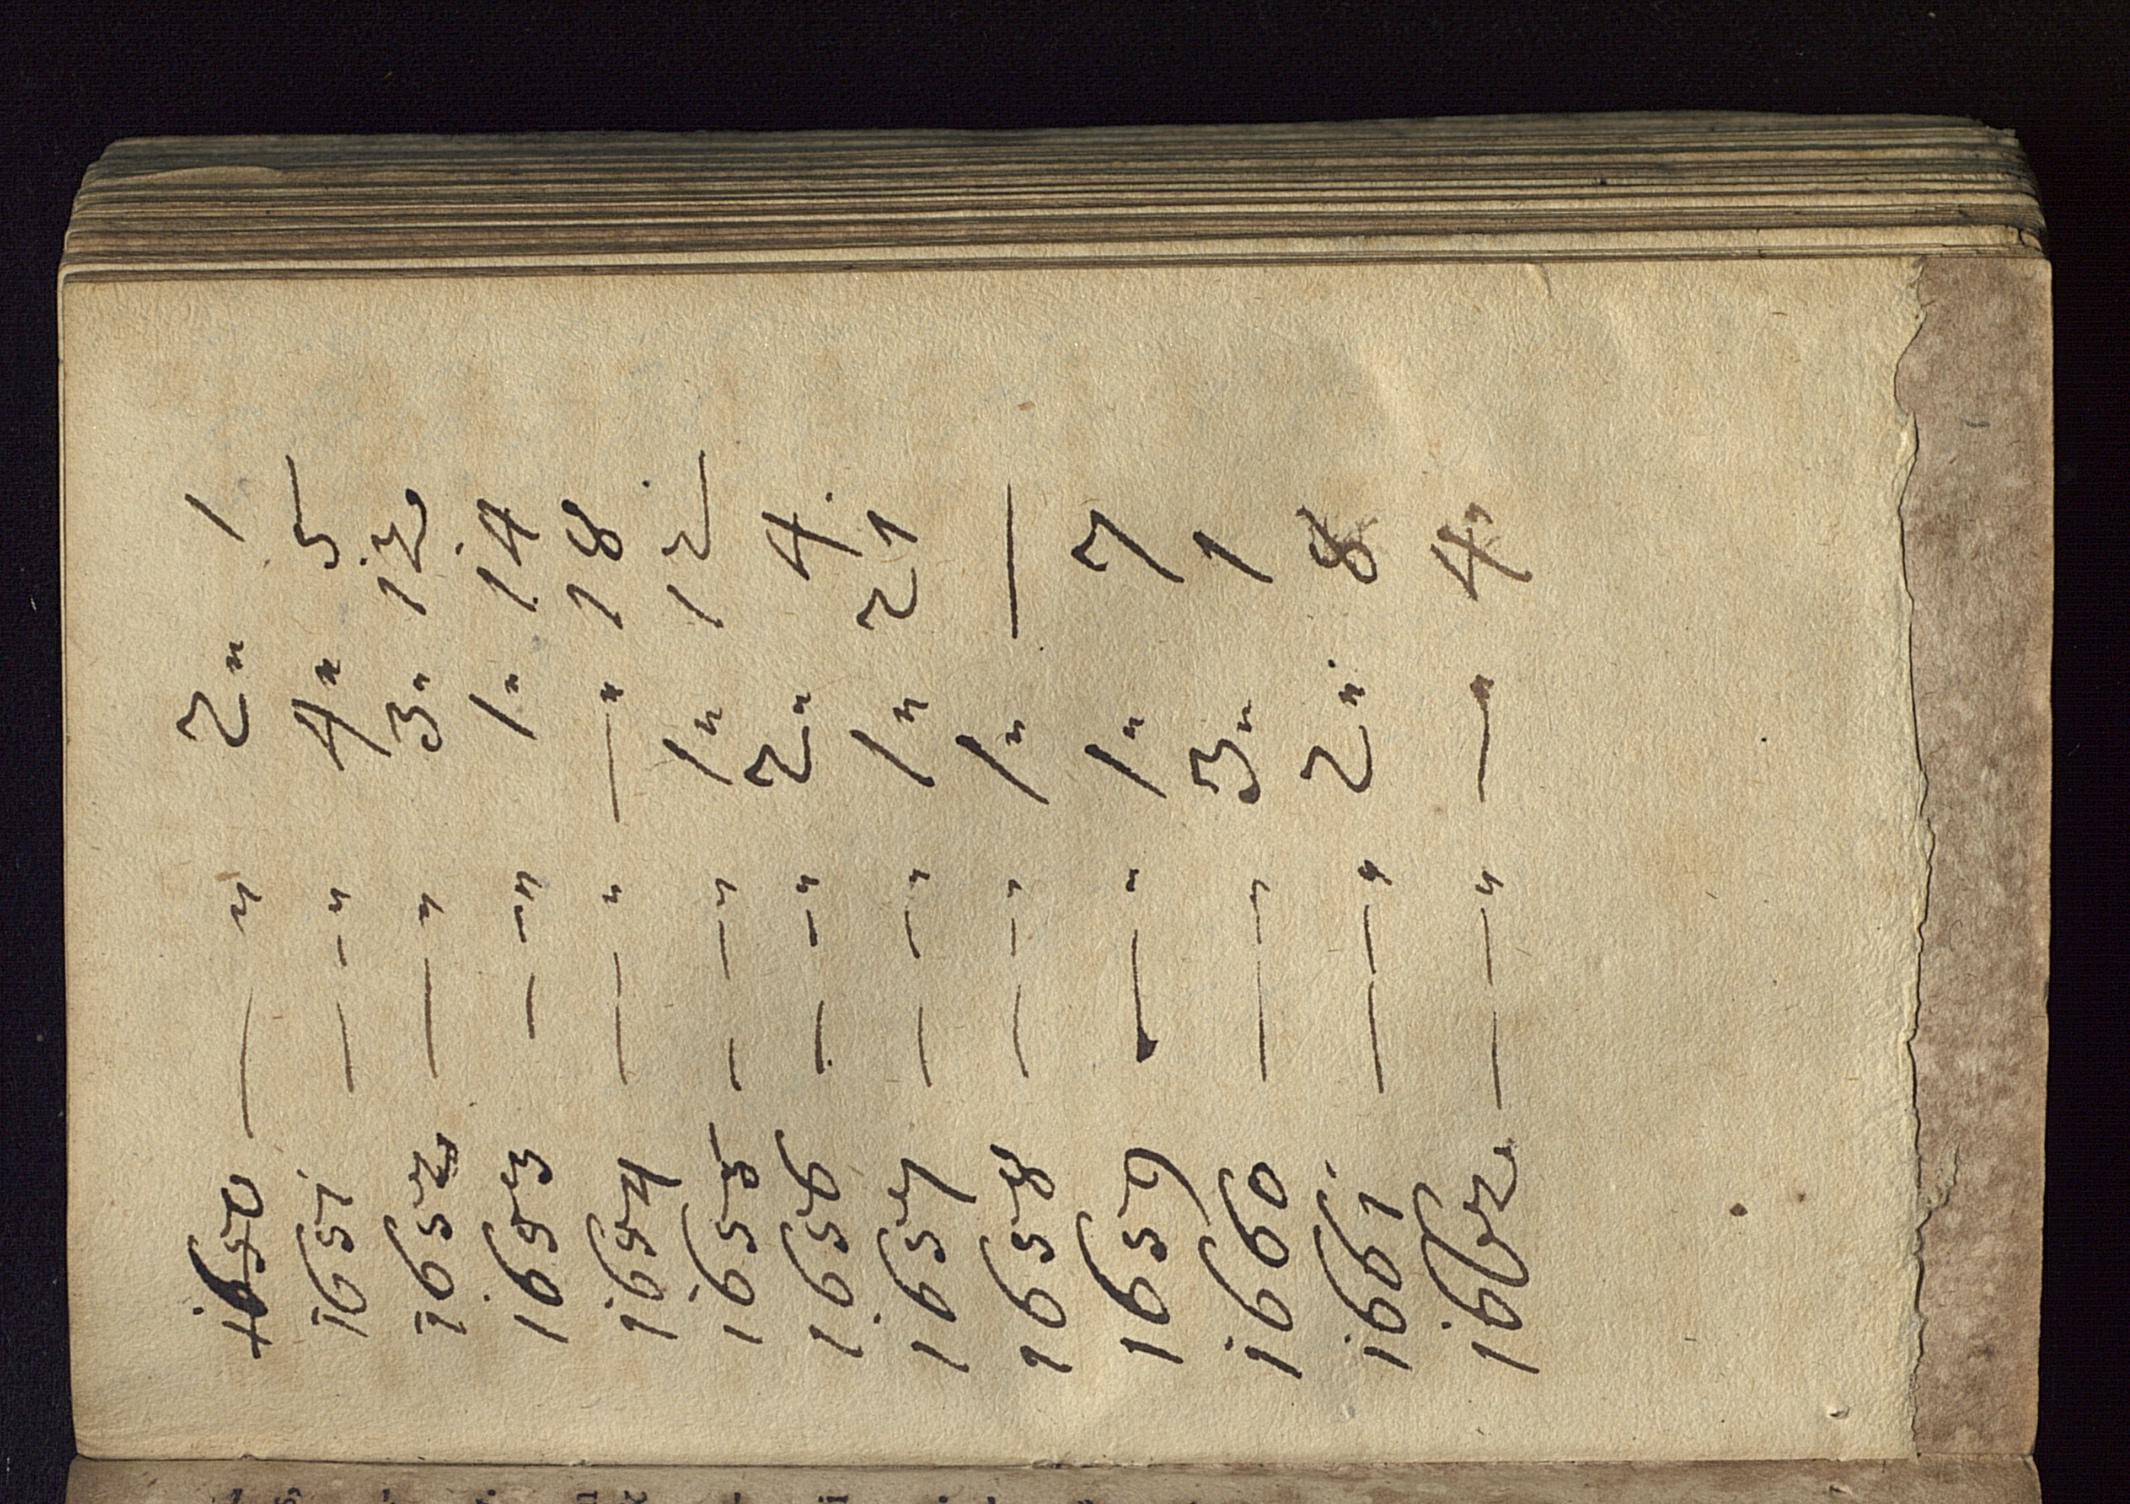 1650 — " 2" 1
1651 — - " 4" 5
1652 — - " 3" 12
1653 — - " 1" 14
1654 — - " —" 18
1655 - — " 1" 12
1656 — - " 2" 4
1657 — - " 1" 21
1658 — - " 1" —
1659 — " 1" 7
1660 — - " 3" 1
1661 — — " 2" 8
1662 — — " —" 4